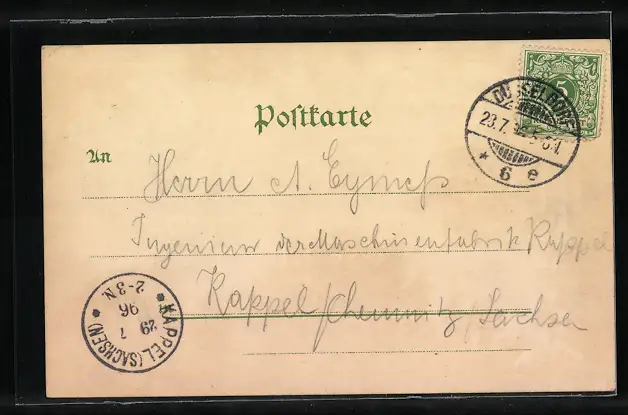 Postkarte
An
Herrn A. Eyness
Ingenieur der Maschinenfabrik Kappel
Kappel/Chemnitz, Sachsen
DÜSSELDORF
23.7.
* 6 e
KAPPEL (SACHSEN)
29 7
96
2-3N.